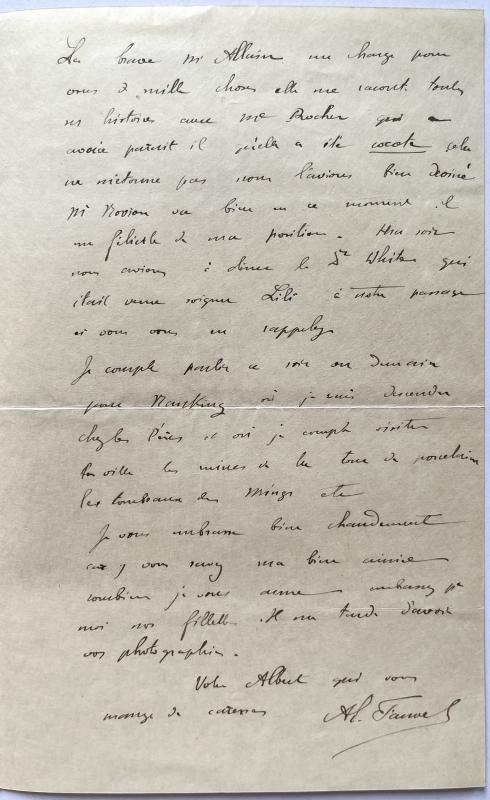 La brave Mr Allain me charge pour
vous de mille choses elle me raconte toutes
ses histoires avec Me Rocher qui a
avoué paraît il qu'elle a été cocote cela
ne m'étonne pas nous l'avions bien deviné
Mr Rovion va bien en ce moment il
me félicite de ma position. Hier soir
nous avions à diner le Dr White qui
était venu soigner Lili à notre passage
si vous vous en rappelez
Je compte partir ce soir ou demain
pour Nanking où je vais descendre
chez les Pères et où je compte visiter
la ville les ruines de la tour de porcelaine
les tombeaux des Mings etc
Je vous embrasse bien chaudement
car vous savez ma bien aimée
combien je vous aime embrassez pr
moi nos fillettes. Il me tarde d'avoir
vos photographies.
Votre Albert qui vous
mange de caresses Al. Fauvel